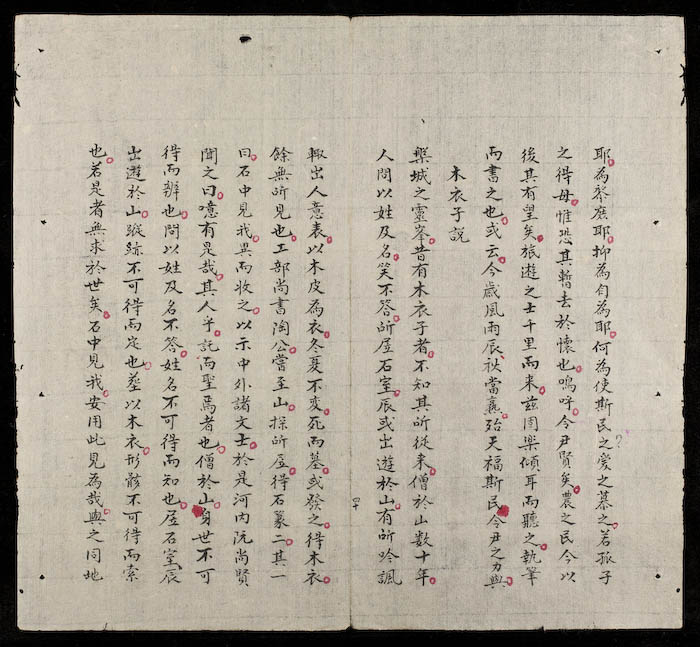 耶為黎庶耶抑為自為耶何為使斯民之愛之慕之若孤子
之得母惟恐其暫去於懷也嗚呼今尹賢矣農之民今以
後其有望矣旅遊之士千里而来兹固樂傾耳而聽之執筆
而書之也或云今歲風雨辰秋當殆天福斯民今尹之力與
木衣子説
城之靈峯昔有木衣子者不知其所從来僧於山數十年
人問以姓及名笑不答所居石室辰或出遊於山有所吟諷
輙出人意表以木皮為衣冬夏不變死而墓或發之得木衣
餘無所見也工部尚書陶公嘗至山探所居得石篆二其一
曰石中見我異而收之以示中外諸文士於是河内阮尚賢
聞之曰噫有是哉其人乎託而聖焉者也僧於山身世不可
得而辨也問以姓及名不答姓名不可得而知也居石室辰
出遊於山蹤跡不可得而定也塟以木衣形骸不可得而索
也若是者無求於世矣石中見我安用此見為哉與之同地